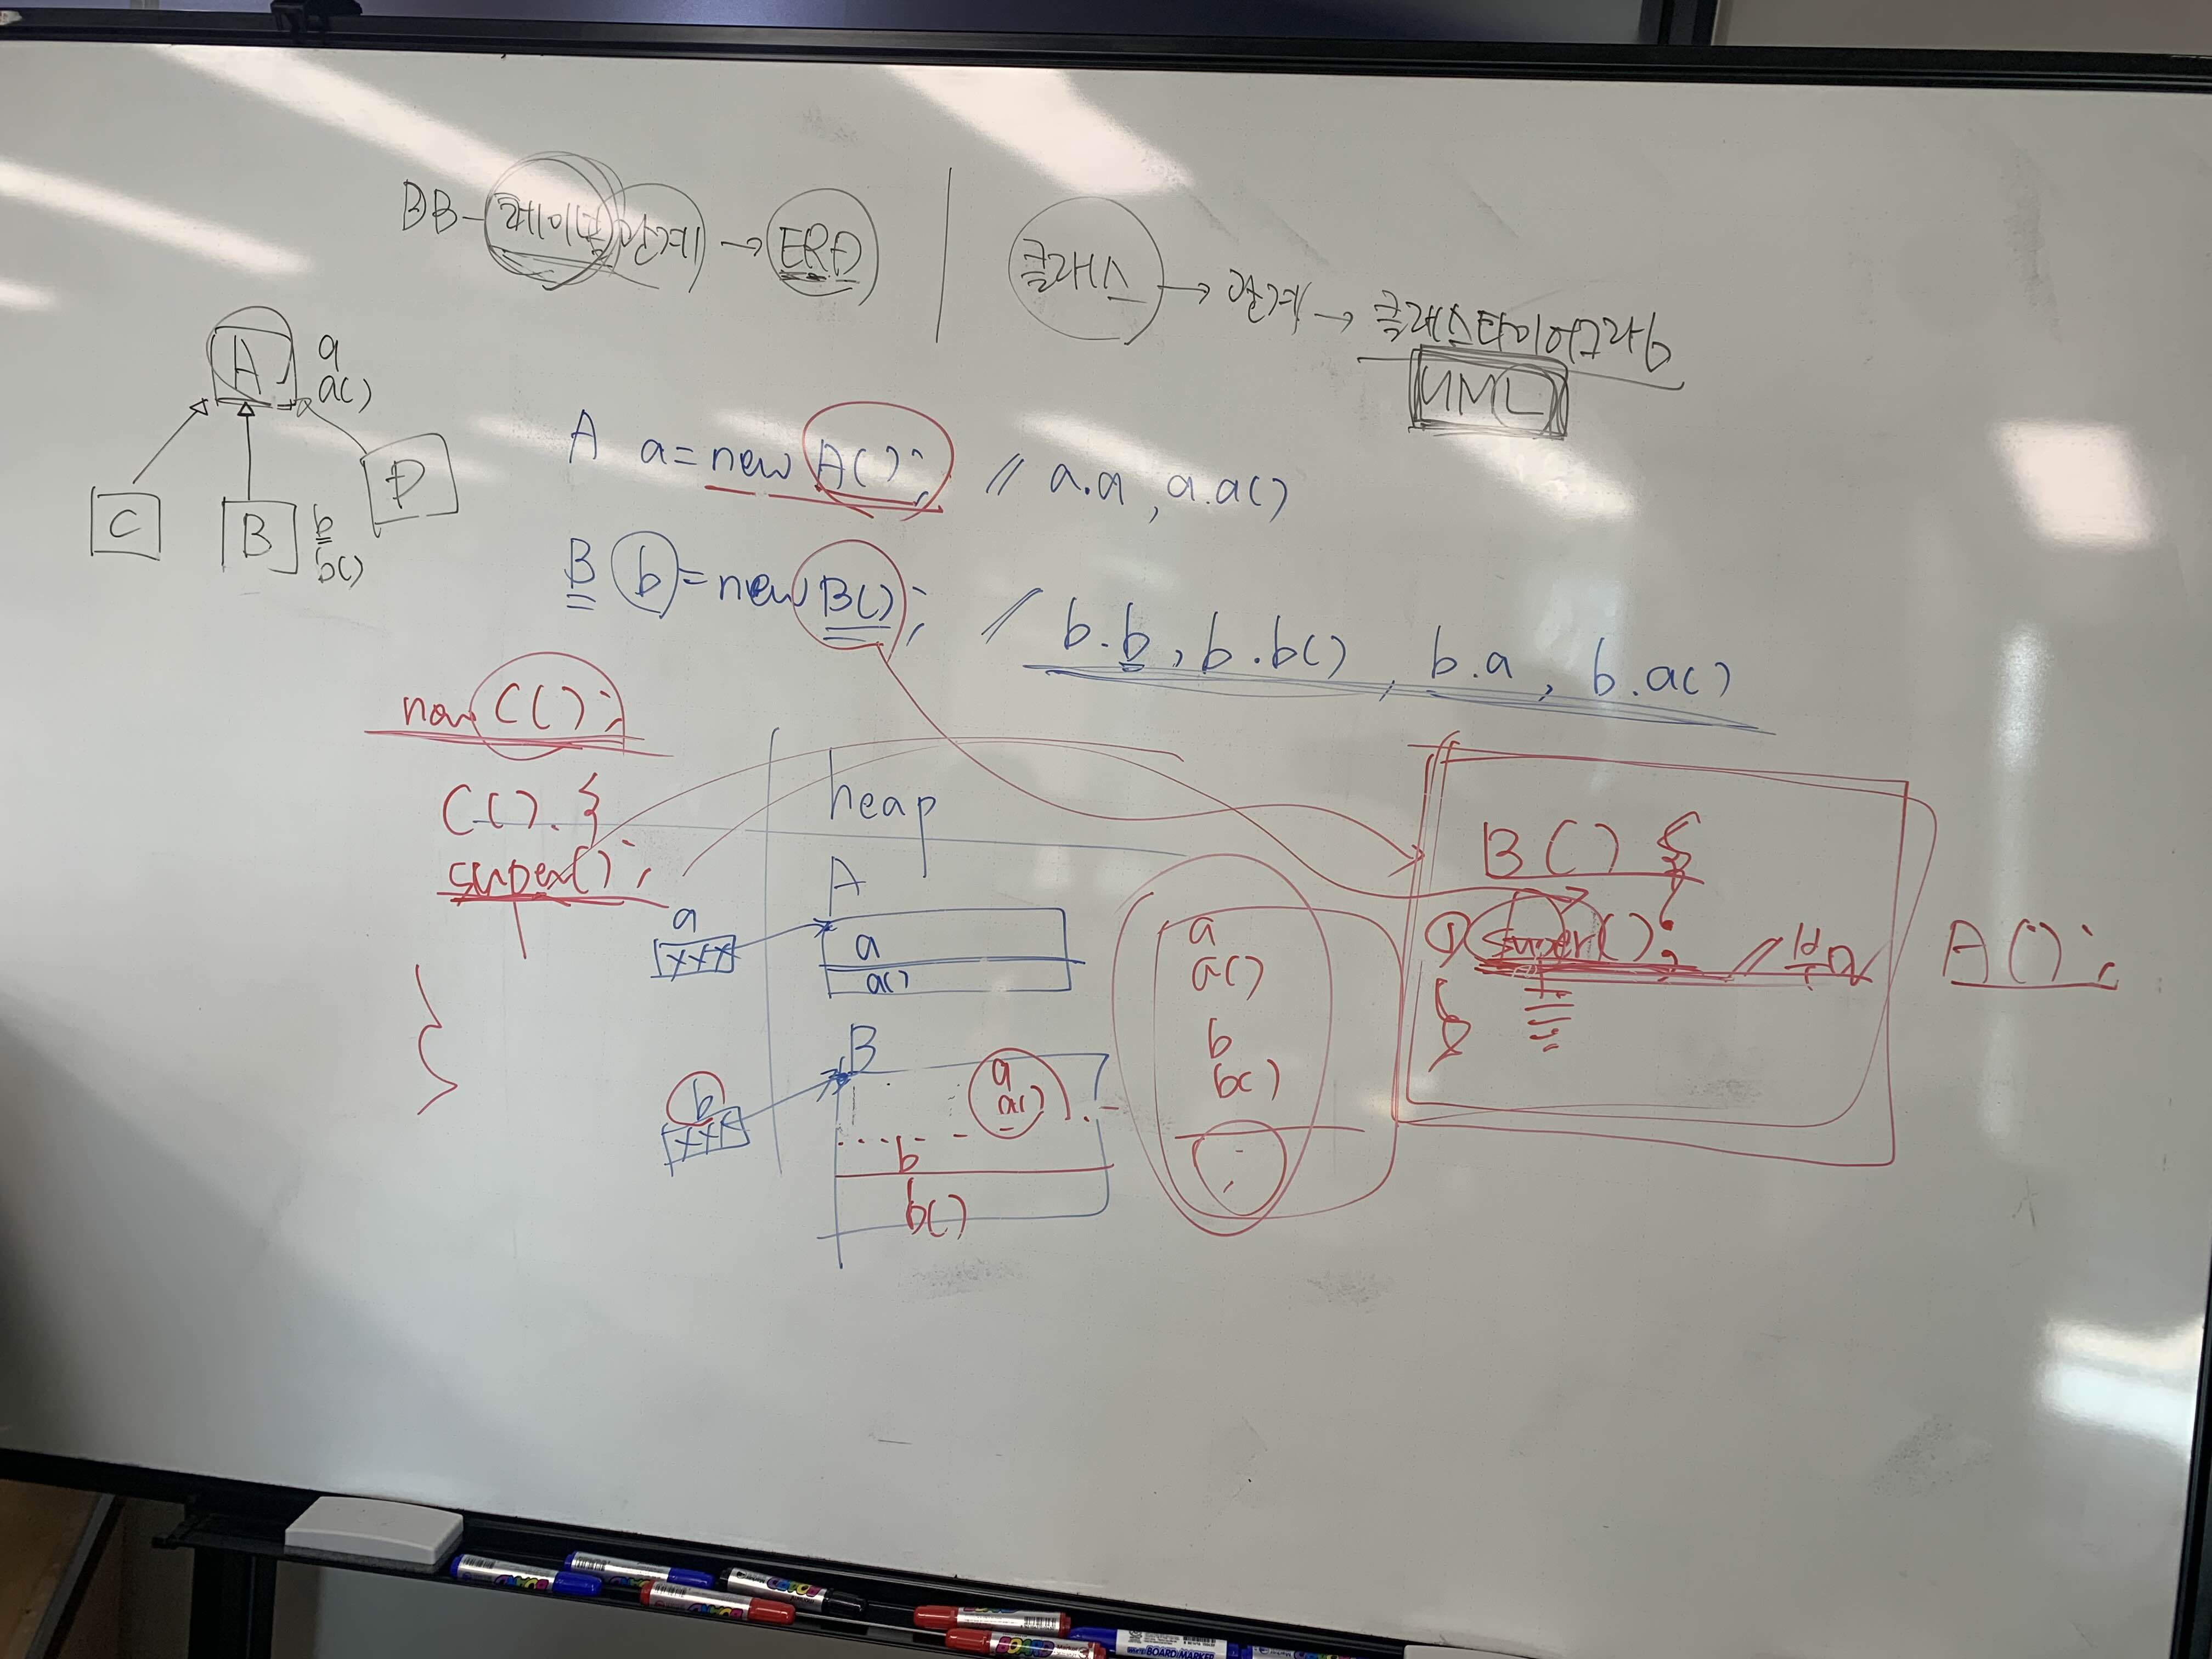 DB-테이블관계 → ERD
클래스 → 관계 → 클래스다이어그램
UML
A
a
a()
C
B
b
b()
D
A a = new A(); // a.a, a.a()
B b = new B(); // b.b, b.b(), b.a, b.a()
new C();
C() {
super();
}
heap
A
a
xxx
a
a()
B
b
xxx
a
a()
b
b()
a
a()
b
b()
B() {
① super(); // 부모 A();
}
BOARD MARKER